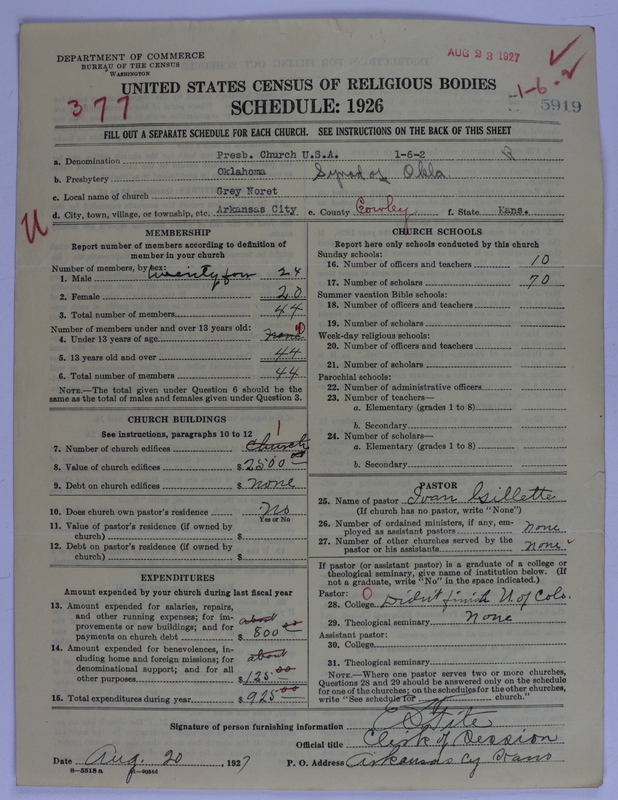 DEPARTMENT OF COMMERCE
BUREAU OF THE CENSUS
WASHINGTON
AUG 23 1927
377
1-6-2
5919
UNITED STATES CENSUS OF RELIGIOUS BODIES
SCHEDULE: 1926
FILL OUT A SEPARATE SCHEDULE FOR EACH CHURCH. SEE INSTRUCTIONS ON THE BACK OF THIS SHEET
a. Denomination Presb. Church U.S.A. 1-6-2
b. Presbytery Oklahoma Synod of Okla
c. Local name of church Grey Noret
U
d. City, town, village, or township, etc. Arkansas City e. County Cowley f. State Kans.
MEMBERSHIP
Report number of members according to definition of
member in your church
Number of members, by sex:
1. Male twenty four 24
2. Female 20
3. Total number of members 44
Number of members under and over 13 years old:
4. Under 13 years of age none
5. 13 years old and over 44
6. Total number of members 44
NOTE.—The total given under Question 6 should be
same as the total of males and females given under Question 3.
CHURCH BUILDINGS
See instructions, paragraphs 10 to 12
7. Number of church edifices Church 1
8. Value of church edifices $ 2500
9. Debt on church edifices $ none
10. Does church own pastor's residence No
Yes or No
11. Value of pastor's residence (if owned by
church) $
12. Debt on pastor's residence (if owned by
church) $
EXPENDITURES
Amount expended by your church during last fiscal year
13. Amount expended for salaries, repairs,
and other running expenses; for im-
provements or new buildings; and for
payments on church debt about $ 800 00
14. Amount expended for benevolences, in-
cluding home and foreign missions; for
denominational support; and for all
other purposes about $ 125.00
15. Total expenditures during year $ 925 00
CHURCH SCHOOLS
Report here only schools conducted by this church
Sunday schools:
16. Number of officers and teachers 10
17. Number of scholars 70
Summer vacation Bible schools:
18. Number of officers and teachers
19. Number of scholars
Week-day religious schools:
20. Number of officers and teachers
21. Number of scholars
Parochial schools:
22. Number of administrative officers
23. Number of teachers—
a. Elementary (grades 1 to 8)
b. Secondary
24. Number of scholars—
a. Elementary (grades 1 to 8)
b. Secondary
PASTOR
25. Name of pastor Ivan Gillette
(If church has no pastor, write "None")
26. Number of ordained ministers, if any, em-
ployed as assistant pastors none
27. Number of other churches served by the
pastor or his assistants none
If pastor (or assistant pastor) is a graduate of a college or
theological seminary, give name of institution below. (If
not a graduate, write "No" in the space indicated.)
Pastor:
28. College 0 Didn't finish U. of Colo.
29. Theological seminary None
Assistant pastor:
30. College
31. Theological seminary
NOTE.—Where one pastor serves two or more churches,
Questions 28 and 29 should be answered only on the schedule
for one of the churches; on the schedules for the other churches,
write "See schedule for church."
Signature of person furnishing information
Official title Clerk of Session
Date Aug. 20, 1927 P. O. Address Arkansas Cy Kans
8-5518 a